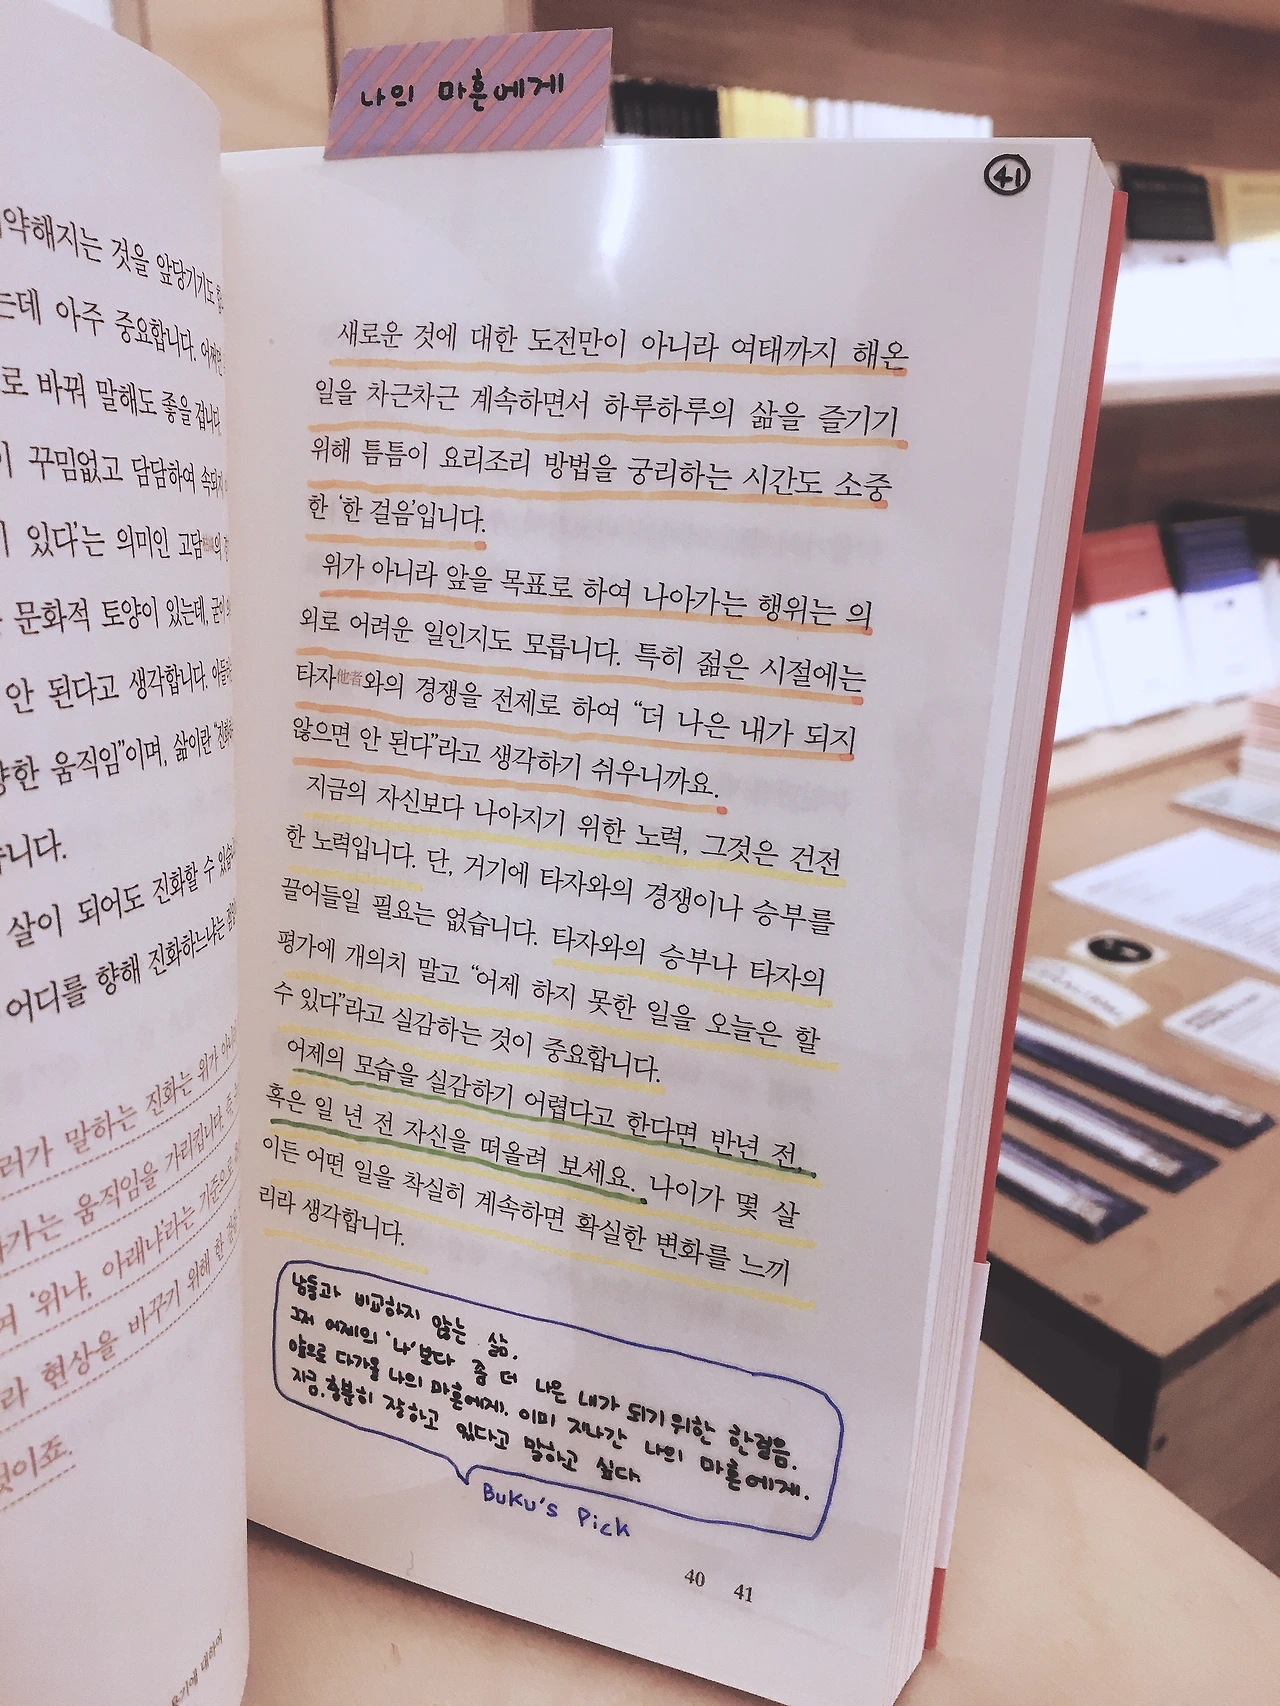 나의 마흔에게
약해지는 것을 앞당기기도
는데 아주 중요합니다.
로 바꿔 말해도 좋을 겁니다.
이 꾸밈없고 담담하여
있다'는 의미인 고담
문화적 토양이 있는데, 굳이
안 된다고 생각합니다.
향한 움직임"이며, 삶이란
습니다.
살이 되어도 진화할 수
어디를 향해 진화하느냐는
러가 말하는 진화는 위가
가는 움직임을 가리킵니다.
'위냐, 아래냐'라는 기준으로
라 현상을 바꾸기 위해 한
것이죠.
41
새로운 것에 대한 도전만이 아니라 여태까지 해온
일을 차근차근 계속하면서 하루하루의 삶을 즐기기
위해 틈틈이 요리조리 방법을 궁리하는 시간도 소중
한 '한 걸음'입니다.
위가 아니라 앞을 목표로 하여 나아가는 행위는 의
외로 어려운 일인지도 모릅니다. 특히 젊은 시절에는
타자他者와의 경쟁을 전제로 하여 "더 나은 내가 되지
않으면 안 된다"라고 생각하기 쉬우니까요.
지금의 자신보다 나아지기 위한 노력, 그것은 건전
한 노력입니다. 단, 거기에 타자와의 경쟁이나 승부를
끌어들일 필요는 없습니다. 타자와의 승부나 타자의
평가에 개의치 말고 "어제 하지 못한 일을 오늘은 할
수 있다"라고 실감하는 것이 중요합니다.
어제의 모습을 실감하기 어렵다고 한다면 반년 전,
혹은 일 년 전 자신을 떠올려 보세요. 나이가 몇 살
이든 어떤 일을 착실히 계속하면 확실한 변화를 느끼
리라 생각합니다.
남들과 비교하지 않는 삶.
그저 어제의 '나'보다 좀 더 나은 내가 되기 위한 한걸음.
앞으로 다가올 나의 마흔에게. 이미 지나간 나의 마흔에게.
지금, 충분히 잘하고 있다고 말하고 싶다.
BUKU'S PICK
40 41